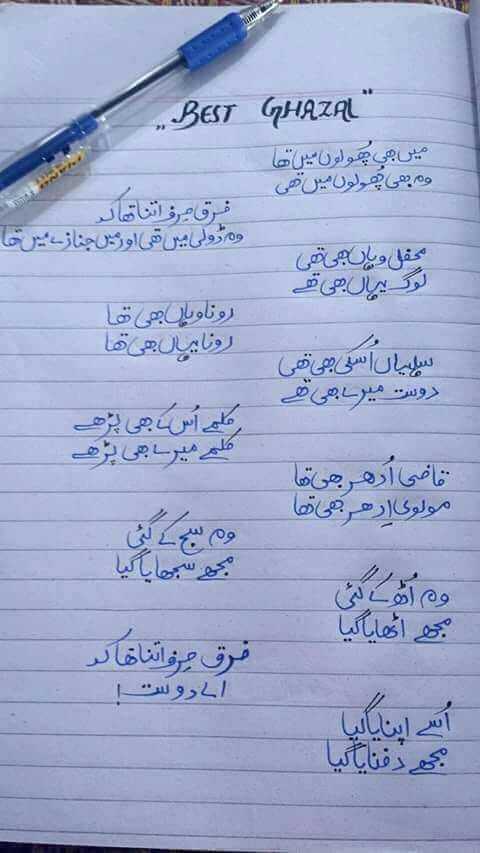 "BEST GHAZAL"
میں بھی پھولوں میں تھا
وہ بھی پھولوں میں تھی
فرق صرف اتنا تھا کہ
وہ ڈولی میں تھی اور میں جنازے میں تھا
محفل وہاں بھی تھی
لوگ یہاں بھی تھے
رونا وہاں بھی تھا
رونا یہاں بھی تھا
سہلیاں اُسکی بھی تھی
دوست میرے بھی تھے
کلمے اُس کے بھی پڑھے
کلمے میرے بھی پڑھے
قاضی اُدھر بھی تھا
مولوی اِدھر بھی تھا
وہ سج کے گئی
مجھے سجھایا گیا
وہ اُٹھ کے گئی
مجھے اٹھایا گیا
فرق صرف اتنا تھا کہ
اے دوست!
اُسے اپنایا گیا
مجھے دفنایا گیا